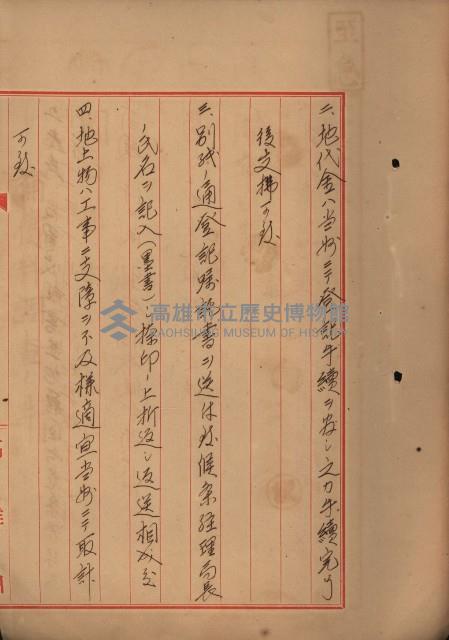 二、地代金ハ当州ニテ登記手續ヲ為シ之カ手續完了
後支拂可致
三、別紙ノ通登記囑託書ヲ送付致候条経理局長
氏名ヲ記入(墨書)シ捺印ノ上折返シ返送相成度
四、地上物ハ工事ニ支障ヲ不及様適宜当州ニテ取計
可致
高雄市立歷史博物館
KAOHSIUNG MUSEUM OF HISTORY